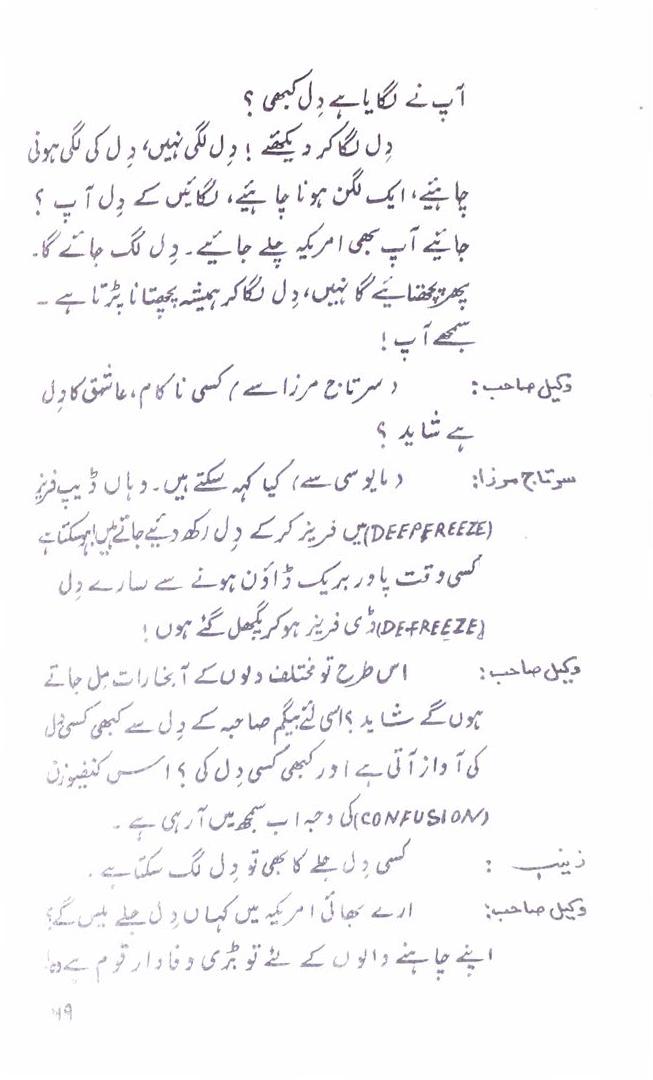 آپ نے لگایا ہے دِل کبھی ؟
دِل لگا کر دیکھئے ! دِل لگی نہیں، دِل کی لگی ہونی
چاہئیے، ایک لگن ہونا چاہئیے، لگائیں گے دِل آپ ؟
جائیے آپ بھی امریکہ چلے جائیے۔ دِل لگ جائے گا۔
پھر پچھتائیے گا نہیں، دِل لگا کر ہمیشہ پچھتانا پڑتا ہے ۔
سمجھے آپ !
وکیل صاحب : ( سرتاج مرزا سے ) کسی ناکام، عاشق کا دِل
ہے شاید ؟
سرتاج مرزا : ( مایوسی سے ) کیا کہہ سکتے ہیں۔ وہاں ڈیپ فریز
(DEEPFREEZE) میں فریز کرکے دِل رکھ دئیے جاتے ہیں! ہوسکتا ہے
کسی وقت پاور بریک ڈاؤن ہونے سے سارے دِل
(DEFREEZE) ڈی فریز ہوکر پگھل گئے ہوں !
وکیل صاحب : اس طرح تو مختلف دلوں کے آبخارات مِل جاتے
ہوں گے شاید ؟ اسی لئے بیگم صاحبہ کے دِل سے کبھی کسی دِل
کی آواز آتی ہے اور کبھی کسی دِل کی ؟ اس کنفیوزن
(CONFUSION) کی وجہ اب سمجھ میں آرہی ہے ۔
زینب : کسی دِل جلے کا بھی تو دِل لگ سکتا ہے ۔
وکیل صاحب : ارے بھائی امریکہ میں کہاں دِل جلے ملیں گے؟
اپنے چاہنے والوں کے لئے تو بڑی وفادار قوم ہے وہ!
۴۹